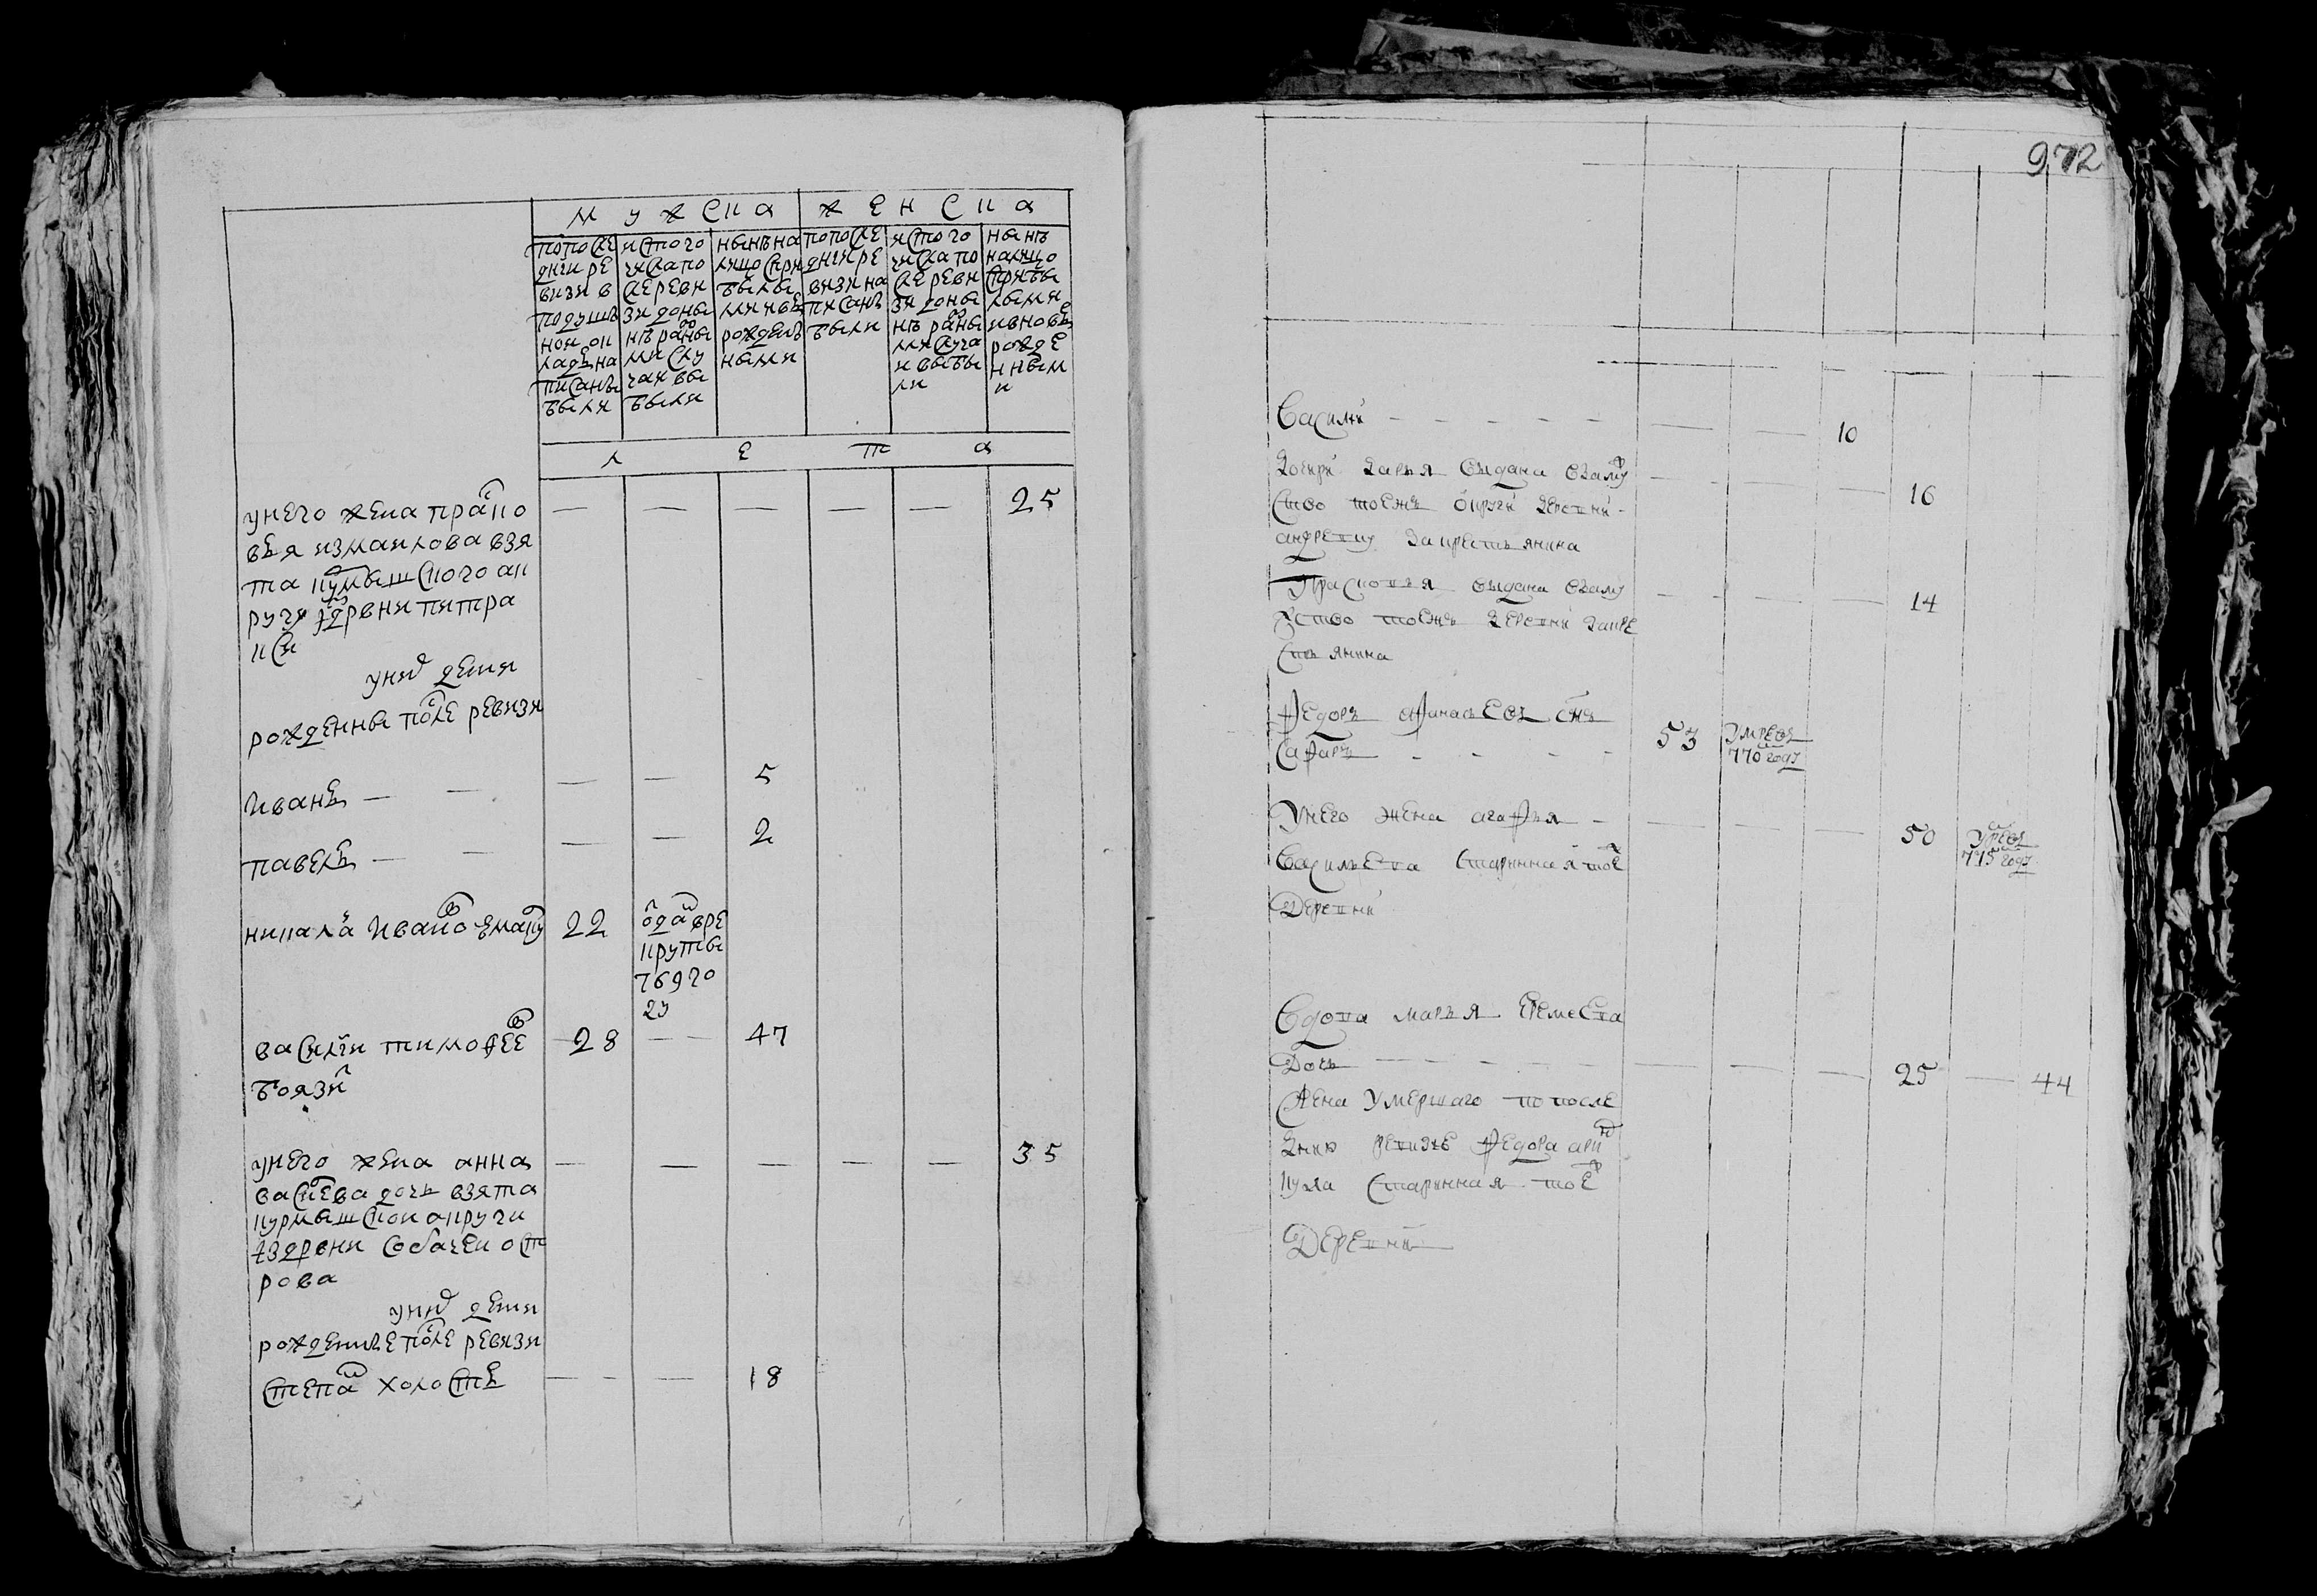 мужеска
женска
попосле
днеи ре
визи в
подушъ
нои ок
ладъ на
писаны
были
исътого
числа по
слеревн
зи доны
нъ разны
ми слу
чаи вы
были
нынъ на
лицо при
былы
ми и въ
рожденъ
ными
попосле
днеи ре
визи на
писанъ
были
исътого
числа по
слеревн
зи доны
нъ разны
ми случа
и выбы
ли
нынъ
налицо
прибы
лыми
ивновъ
рожде
нным
и
лета
унего жена праско
вья измаилова взя
та курмышского ок
руги здервни питра
кси
25
униχ дети
рожденны после ревизи
Иванъ — — — — 5
павелъ — — — — 2
никала Иванов чмапу 22
одан врe
круты
769 го
ду
василии тимофеев 28 — — 47
боязн
унего жена анна — — — — — 35
васильева дочь взята
курмышскои округи
здервни собачеи ост
рова
униχ дети
рожденые после ревизи
степан холостъ — — — 18
972
Василии — — — — — — — 10
Дочири Дарья выдана взаму — — — — 16
ство тоежъ округи деревни
андревку закрестьянина
Прасковья выдана взаму — — — — 14
жство тоежъ деревни закре
стьянина
Федоръ афанасьевъ снъ
Сафаръ — — — — 53 умревъ
770 году
Унего жена агафья — — — — 50 умрев
775 году
Васильева Стариннаяя тоеж
Деревни
Вдова марья еремеева
Дочь — — — — — — 25 — 44
Жена умершаго по после
днии ревизие Федора ари
кула Старинная тоеж
Деревни